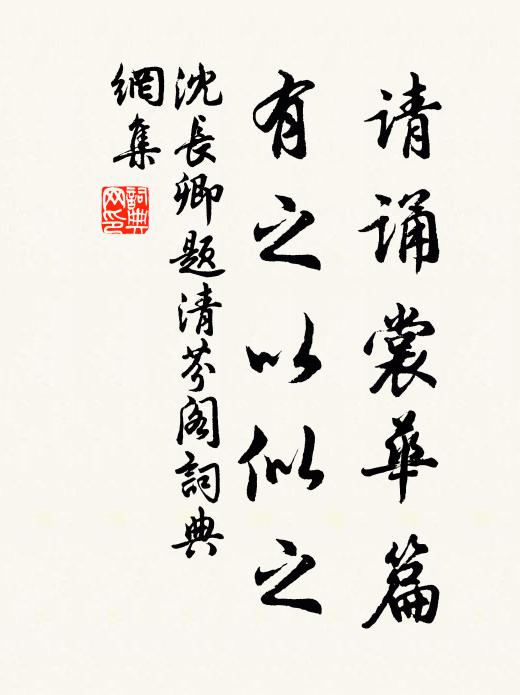 请诵裳華篇
有之以似之
沈長卿題清芬阁詞典
網集
詞典
网印